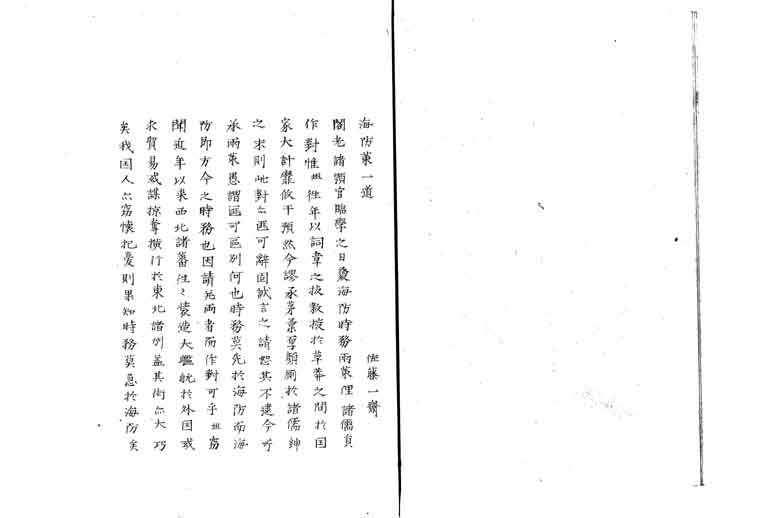 海防策一道
佐藤一齋
閣老諸領官臨學之日發海防時務兩策俚諸儒員
作對惟坦徃年以詞章之技數擬於草莽之間於国
家大計靡攸干預然今謬承茅彙專類廁於諸儒紳
之末則此對亦叵可辭固試言之請恕其不逮今所
承兩策愚謂叵可區別何也時務莫先於海防而海
防即方今之時務也因請兼兩者而作對可乎坦竊
聞近年以来西北諸蕃徃々装造大艦航於外国或
求貿易或謀掠奪横行於東北諸州蓋其術亦大巧
矣我国人亦窃懐杞憂則果知時務莫急於海防矣